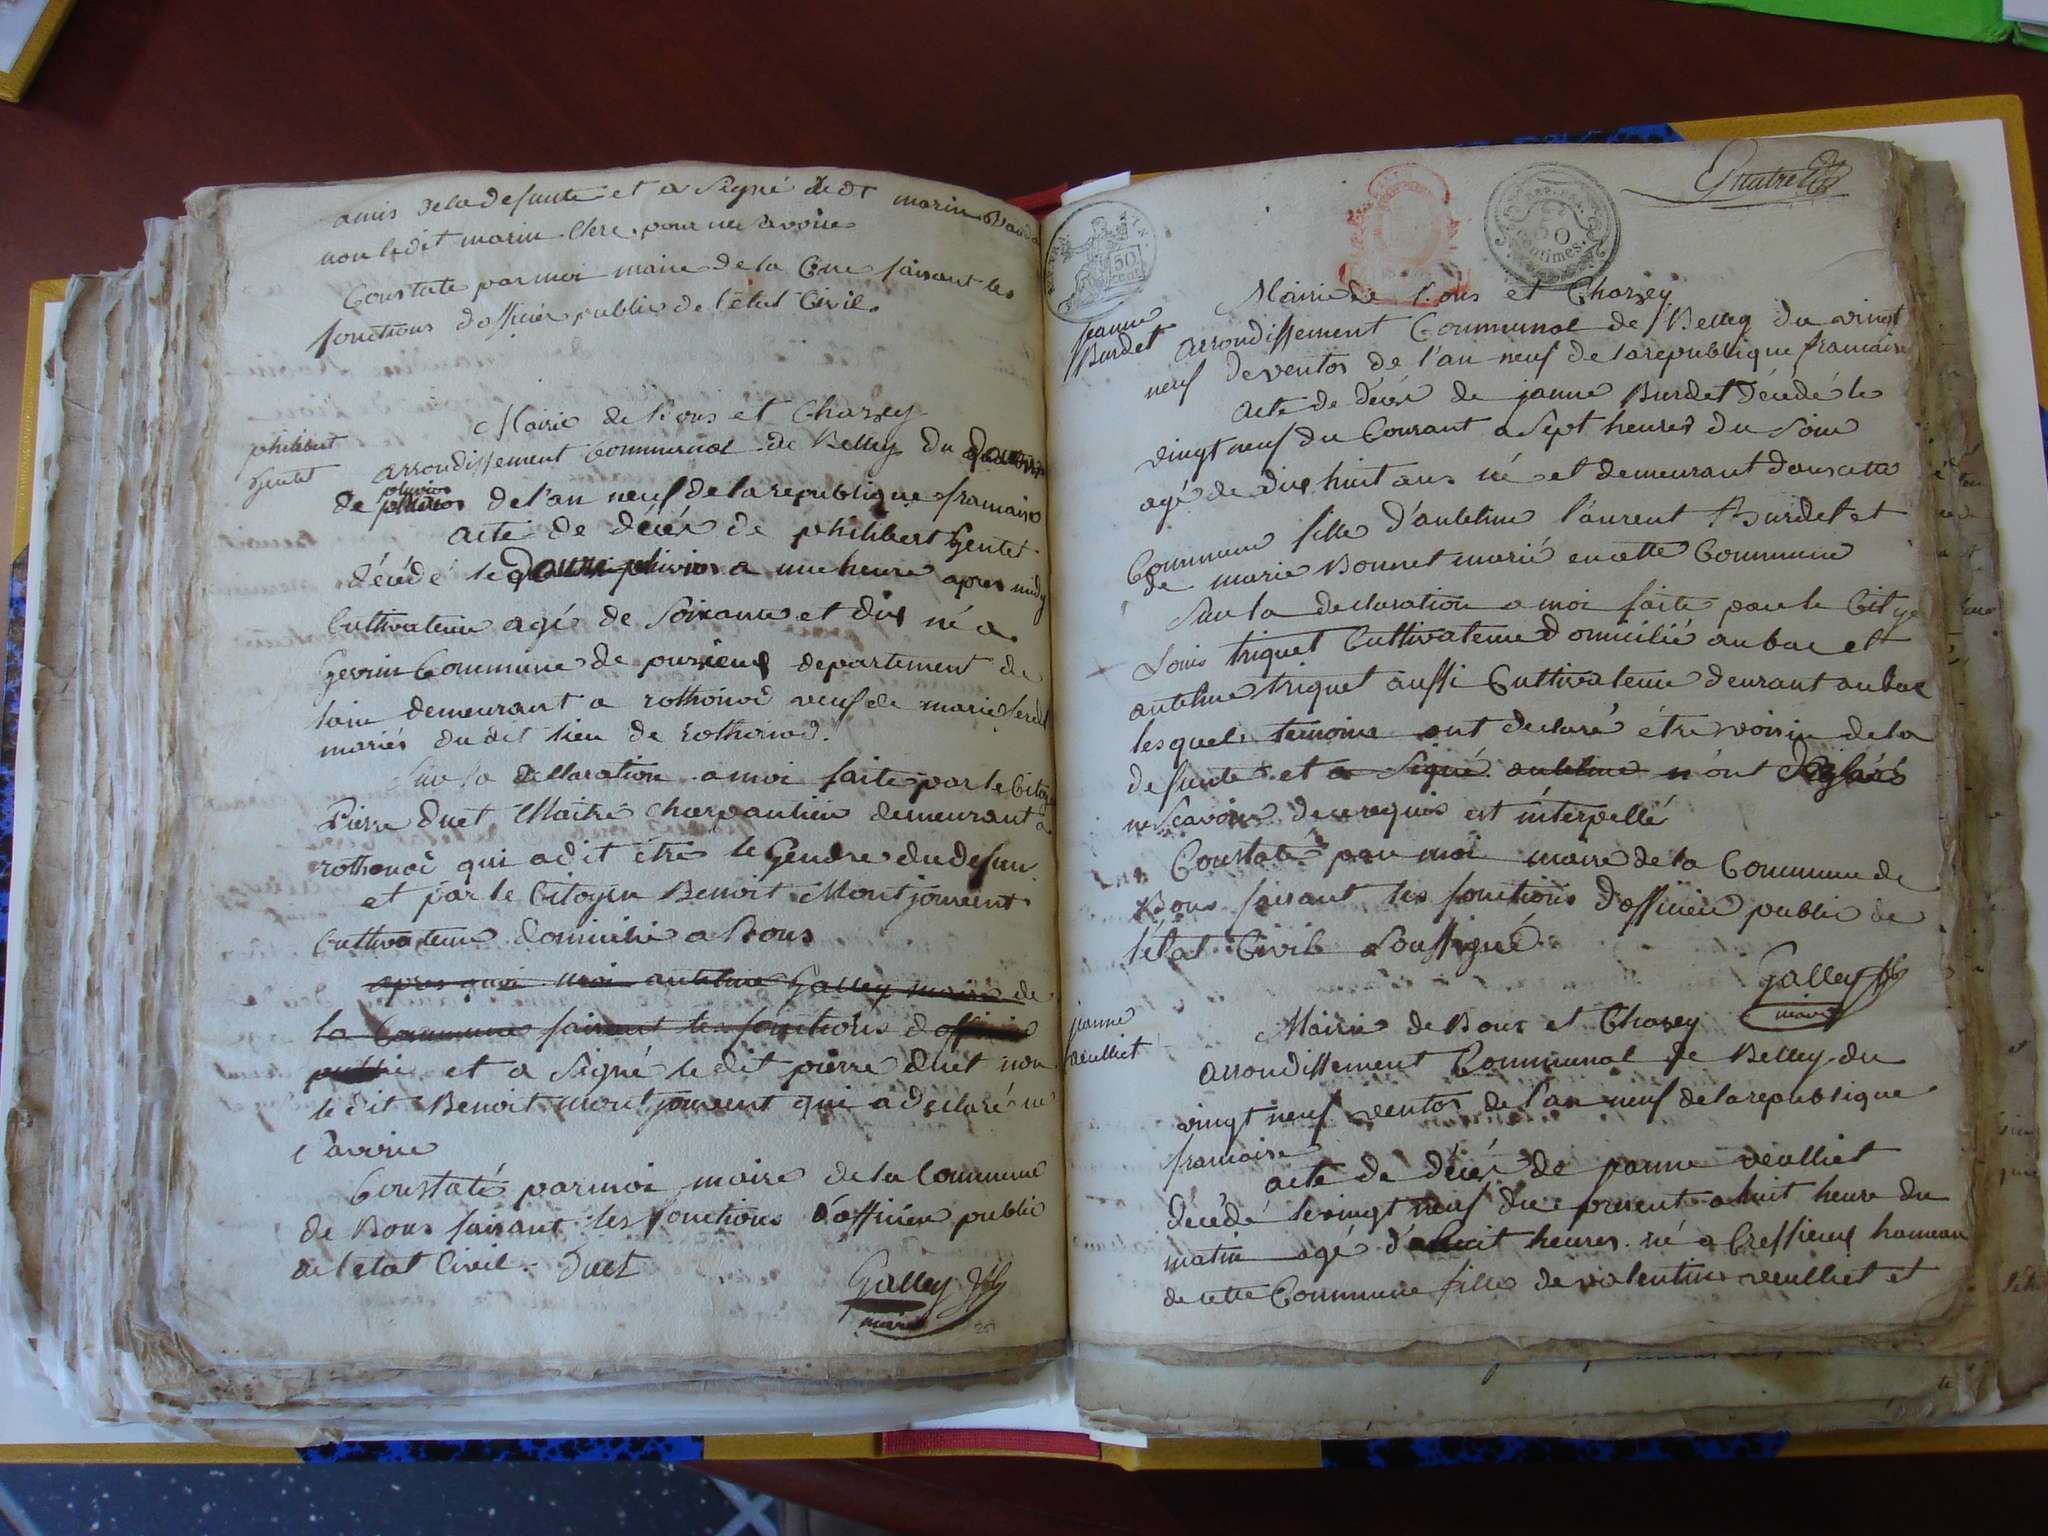 amis de la defunte et a Signé ledt marin
non le dit marin Clerc pour ne savoire
Constaté par moi maire de la Cne faisant les
fonctions dofficier public de l'état Civil.
philibert
Gentet
Mairie de Bons et Chazey
arrondissement Communal de Belley du
de pluvios de l'an neuf de la republique francaise
pluvios
acte de décés de philibert Gentet
décédé le pluvios a une heure apres midy
Cultivateur agé de Soixante et dix né a
Commune de departement de
lain demeurant a rothonod veuf de marie
mariés du dit lieu de rothonod.
Sur la declaration a moi faite par le Citoyen
Pierre duet Maitre charpantier demeurant a
rothonod qui a dit être le Gendre du defun
et par le Citoyen Benoit Montjouvent
Cultivateur domicilié a Bons
apres quoi moi antelme Galley maire de
la Commune faisant les fonctions dofficier
public et a Signé le dit pierre duet non
le dit Benoit montjouvent qui a declaré ne
Savoire
Constaté par moi maire de la Commune
de Bons faisant les fonctions d'officier public
de l'etat Civil. Duet
Galley
maire
50
50
Centimes.
Jeanne
Burdet
Mairie de Bons et Chazey
arrondissement Communal de Belley du vingt
neuf de ventos de l'an neuf de la republique francaise
acte de décés de janne Burdet Décédé le
vingt neuf du Courant a Sept heures du Soire
agé de dix huit ans né et demeurant dans cette
Commune fille d'antelme laurent Burdet et
de marie Bonnet marié en cette Commune
Sur la declaration a moi faite par le
Louis triquet Cultivateur Domicilié au bac et
antelme triquet aussi Cultivateur deurant au bac
lesquels temoins ont declaré étre voisin de la
defunte et a Signé antelme n'ont déclaré
ne Scavoire de ce requis est interpellé
Constaté par moi maire de la Commune de
Bons faisant les fonctions dofficier public de
létat Civil Soussigné
Galley
maire
jeanne
veulliet
Mairie de Bons et Chazey
arrondissement Communal de Belley du
vingt neuf ventos de l'an neuf de la republique
francaise
acte de décés de janne veulliet
décédé le vingt neuf du present a huit heure du
matin agé d' huit heures né a Cressieux hameau
de cette Commune fille de valentin veulliet et